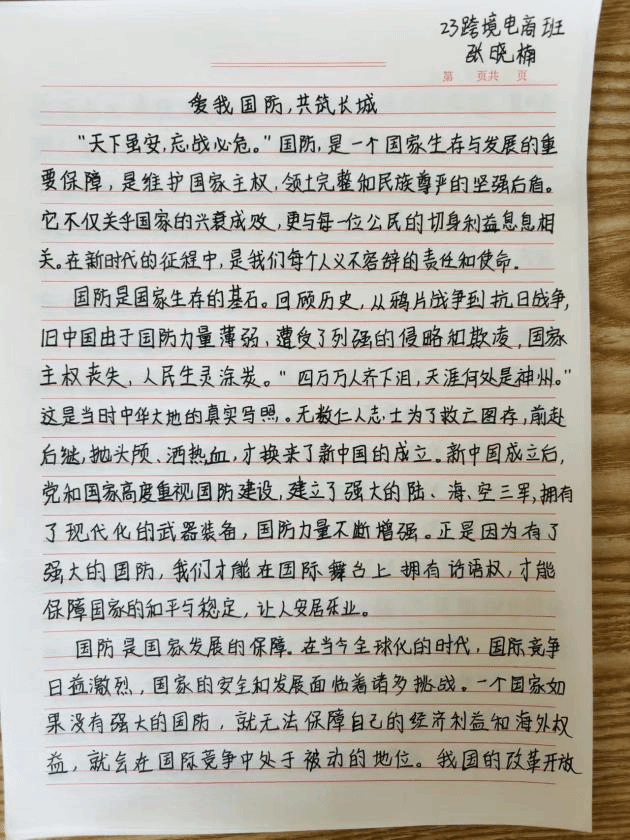 23跨境电商班
张晓楠
第 页共 页
爱我国防,共筑长城
“天下虽安,忘战必危。”国防,是一个国家生存与发展的重
要保障,是维护国家主权,领土完整和民族尊严的坚强后盾。
它不仅关乎国家的兴衰成败,更与每一位公民的切身利益息息相
关。在新时代的征程中,是我们每个人义不容辞的责任和使命.
国防是国家生存的基石。回顾历史,从鸦片战争到抗日战争,
旧中国由于国防力量薄弱,遭受了列强的侵略和欺凌,国家
主权丧失,人民生灵涂炭。“四万万人齐下泪,天涯何处是神州。”
这是当时中华大地的真实写照。无数仁人志士为了救亡图存,前赴
后继,抛头颅、洒热血,才换来了新中国的成立。新中国成立后,
党和国家高度重视国防建设,建立了强大的陆、海、空三军,拥有
了现代化的武器装备,国防力量不断增强。正是因为有了
强大的国防,我们才能在国际舞台上拥有话语权,才能
保障国家的和平与稳定,让人安居乐业。
国防是国家发展的保障。在当今全球化的时代,国际竞争
日益激烈,国家的安全和发展面临着诸多挑战。一个国家如
果没有强大的国防,就无法保障自己的经济利益和海外权
益,就会在国际竞争中处于被动的地位。我国的改革开放